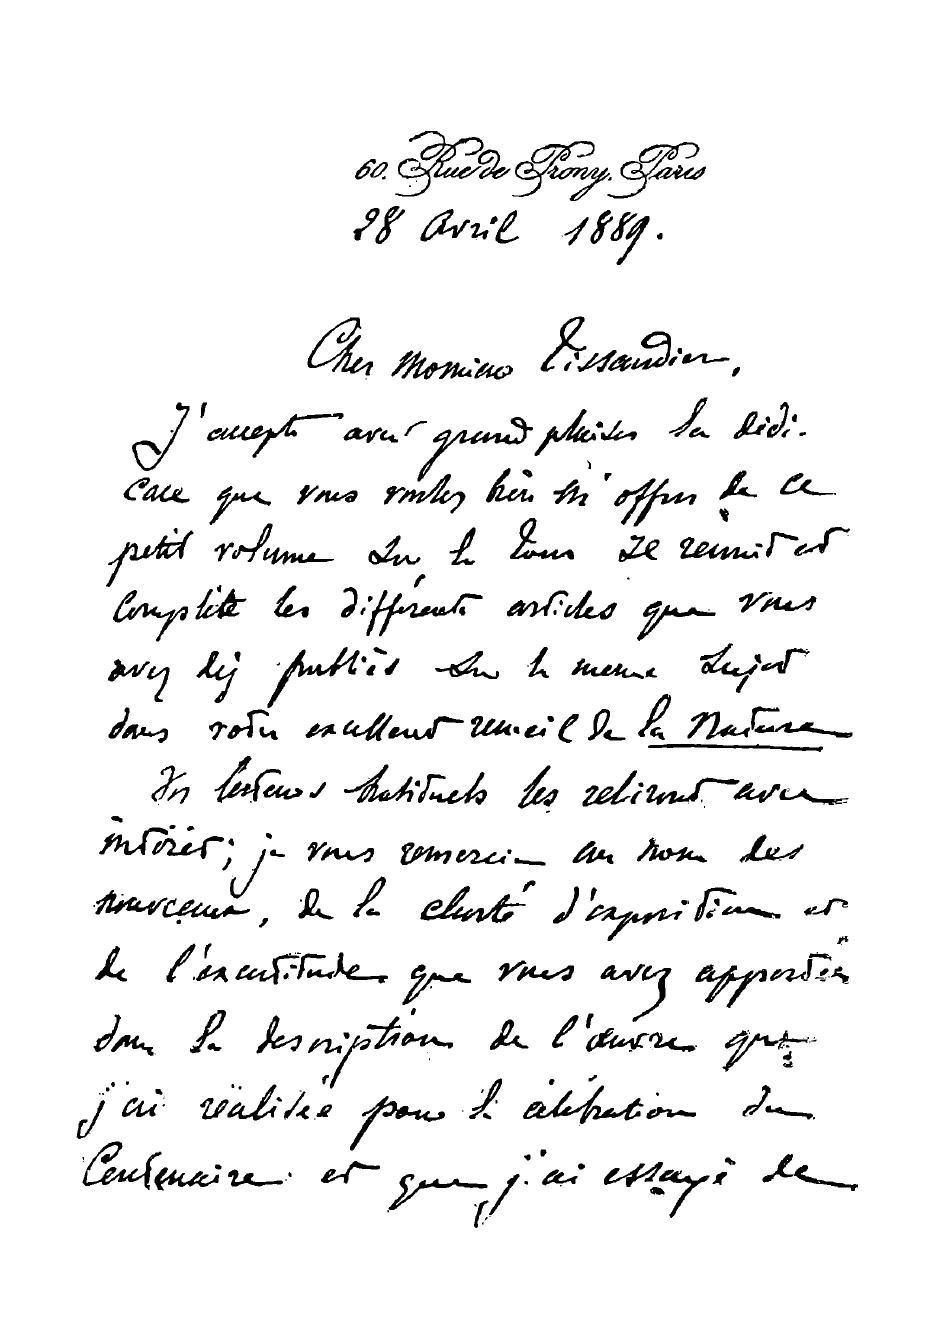 60. Rue de Prony. Paris
28 Avril 1889.
Cher Monsieur Tissandier,
J'accepte avec grand plaisir la dédi-
cace que vous voulez bien m'offrir de ce
petit volume sur la Tour Il réunit et
complète les différents articles que vous
avez déjà publiés sur le même sujet
dans votre excellent recueil de la Nature
Vos lecteurs habituels les reliront avec
intérêt; je vous remercie au nom des
nouveaux, de la clarté d'exposition et
de l'exactitude que vous avez apportées
dans la description de l'œuvre que
j'ai réalisée pour la célébration du
Centenaire et que j'ai essayé de